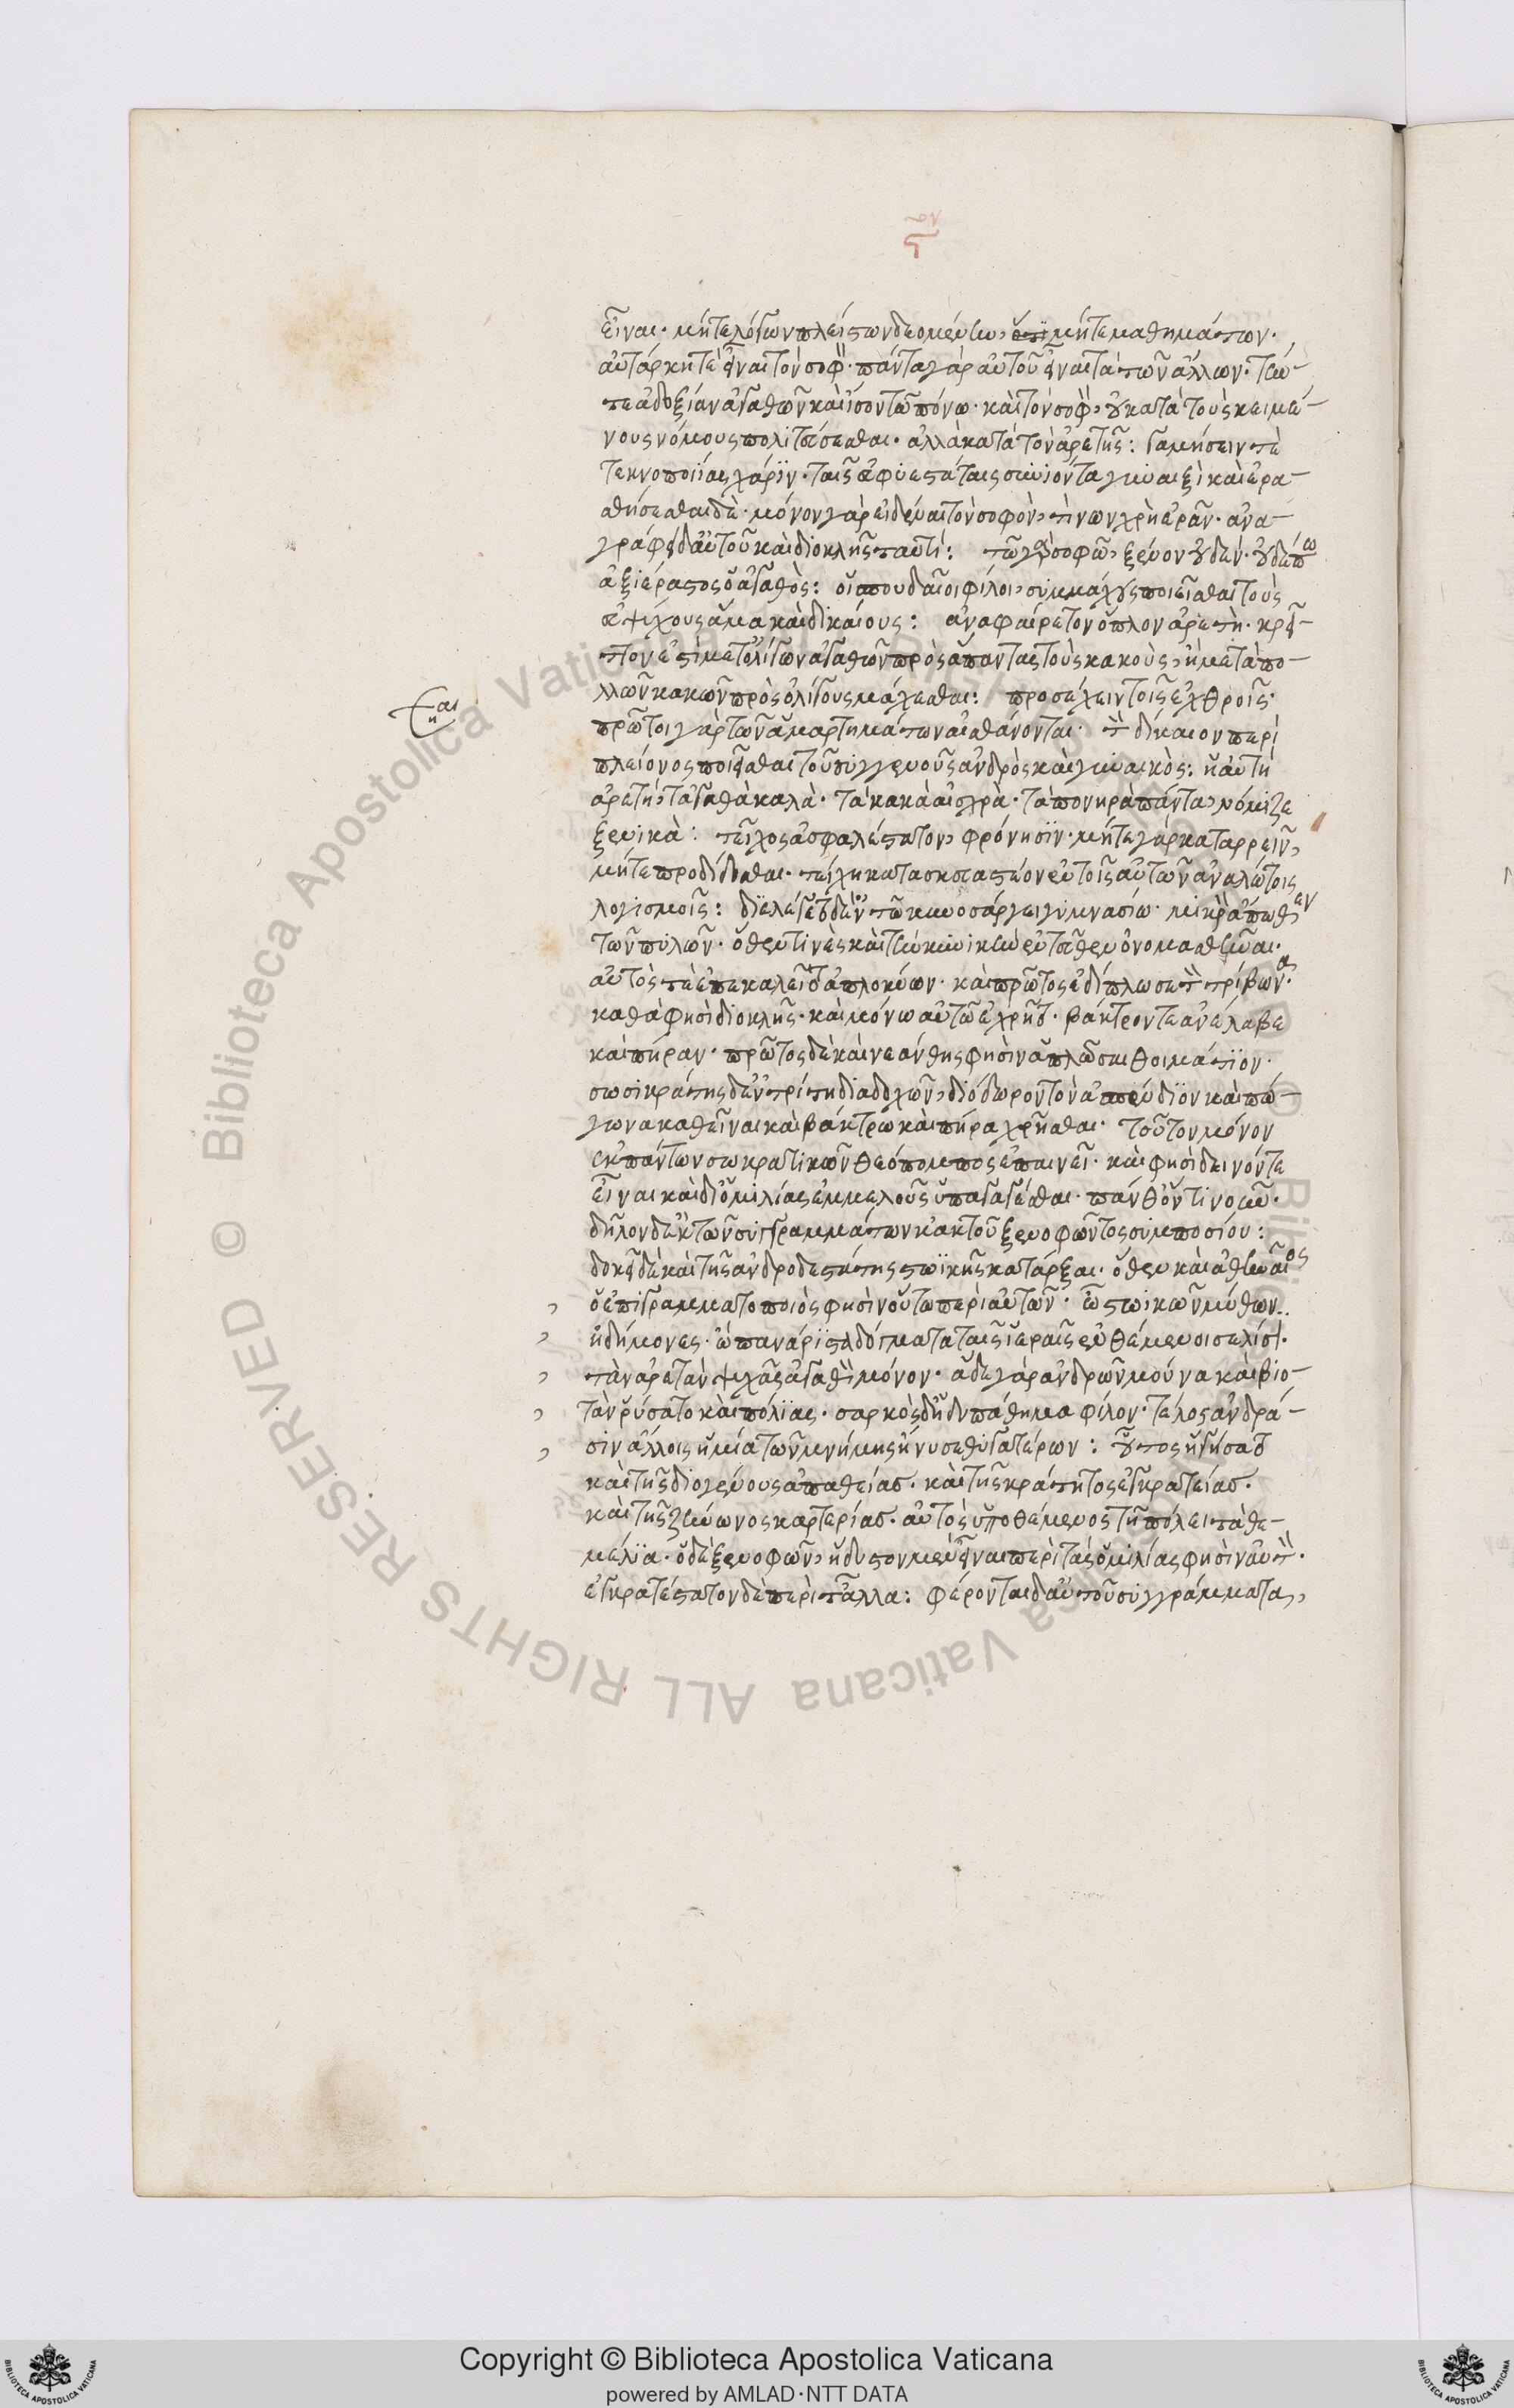 ϛ̅ον
εἶναι· μήτε λόγων πλείστων δεομένην, μήτε μαθημάτων·
αὐτάρκη τὲ εἶναι τὸν σοφόν· πάντα γὰρ αὐτοῦ εἶναι τὰ τῶν ἄλλων· τήν
τε ἀδοξίαν ἀγαθῶν καὶ ἴσον τῶ πόνω· καὶ τὸν σοφὸν, οὐ κατὰ τοὺς κειμέ-
νους νόμους πολιτεύσεσθαι· ἀλλὰ κατὰ τὸν ἀρετῆς: γαμήσειν τὲ
τεκνοποιΐας χάριν· ταῖς εὐφυεστάταις συνιόντα γυναιξὶ καὶ ἐρα-
σθήσεσθαι δὲ· μόνον γὰρ εἰδέναι τὸν σοφὸν, τίνων χρὴ ἐρᾶν· ἀνα-
γράφει δ' αὐτοῦ καὶ διοκλῆς ταυτί: τῶ γὰρ σοφῶ, ξένον οὐδέν· οὐδ' ἄπω
ἀξιέραστος ὁ ἀγαθὸς: οἱ σπουδαῖοι φίλοι, συμμάχους ποιεῖσθαι τοὺς
εὐψύχους ἅμα καὶ δικαίους: ἀναφαίρετον ὅπλον ἀρετὴ· κρεῖ-
ττόν ἐστι μετ' ὀλίγων ἀγαθῶν πρὸς ἅπαντας τοὺς κακοὺς, ἢ μετὰ πο-
λλῶν κακῶν πρὸς ὀλίγους μάχεσθαι: προσέχειν τοῖς ἐχθροῖς·
πρῶτοι γὰρ τῶν ἁμαρτημάτων αἰσθάνονται· τὸν δίκαιον περὶ
πλείονος ποιεῖσθαι τοῦ συγγενοῦς ἀνδρὸς καὶ γυναικὸς: ἡ αὐτὴ
ἀρετὴ, τἀγαθὰ καλὰ· τὰ κακὰ αἰσχρὰ· τὰ πονηρὰ πάντα, νόμιζε
ξενικὰ: τεῖχος ἀσφαλέστατον, φρόνησιν· μήτε γὰρ καταρρεῖν,
μήτε προδίδοσθαι· τείχη κατασκευαστέον ἐν τοῖς αὐτῶν ἀναλώτοις
λογισμοῖς: διελέγετο δ' ἐν τῶ κυνοσάργει γυμνασίω· μικρὸν ἄπωθεν
τῶν πυλῶν· ὅθεν τινὲς καὶ τὴν κυνικὴν ἐντεῦθεν ὀνομασθῆναι·
αὐτός τε ἐπεκαλεῖτο ἁπλοκύων· καὶ πρῶτος ἐδίπλωσε τὸν τρίβωνα·
καθά φησι διοκλῆς· καὶ μόνω αὐτῶ ἐχρῆτο· βάκτρον τε ἀνέλαβε
καὶ πήραν· πρῶτος δὲ καὶ νεάνθης φησὶν ἁπλῶσαι θοιμάτιον·
σωσικράτης δ' ἐν τρίτη διαδοχῶν, διόδωρον τὸν ἀσπένδιον καὶ πώ-
γωνα καθεῖναι καὶ βάκτρω καὶ πήρα χρῆσθαι· τοῦτον μόνον
ἐκ πάντων σωκρατικῶν θεόπομπος ἐπαινεῖ· καί φησι δεινόν τε
εἶναι καὶ δι' ὁμιλίας ἐμμελοῦς ὑπαγαγέσθαι· πάνθ' ὁντινοῦν·
δῆλον δ' ἐκ τῶν συγγραμμάτων κἀκ τοῦ ξενοφῶντος συμποσίου:
δοκεῖ δὲ καὶ τῆς ἀνδροδεστάτης στωϊκῆς κατάρξαι· ὅθεν καὶ ἀθήναιος
ὁ ἐπιγραμματοποιός φησιν οὕτω περὶ αὐτῶν· ὦ στωϊκῶν μύθων
εἰδήμονες· ὦ πανάριστα δόγματα ταῖς ἱεραῖς ἐνθέμενοι σελίσι·
τὰν ἀρετὰν ψυχᾶς ἀγαθὸν μόνον· ἅδε γὰρ ἀνδρῶν μούνα καὶ βιο-
τὰν ῥύσατο καὶ πόλιας· σαρκὸς δ' ἡδυπάθημα φίλον· τέλος ἀνδρά-
σιν ἄλλοις ἡ μία τῶν μνήμης ἤνυσε θυγατέρων: οὗτος ἡγήσατο
καὶ τῆς διογένους ἀπαθείας· καὶ τῆς κράτητος ἐγκρατείας·
καὶ τῆς ζήνωνος καρτερίας· αὐτὸς ὑποθέμενος τῆ πόλει τὰ θε-
μέλια· ὁ δὲ ξενοφῶν, ἥδιστον μὲν εἶναι περὶ τὰς ὁμιλίας φησὶν αὐτὸν·
ἐγκρατέστατον δὲ περὶ τἆλλα: φέρονται δ' αὐτοῦ συγγράμματα,
Copyright © Biblioteca Apostolica Vaticana
powered by AMLAD·NTT DATA